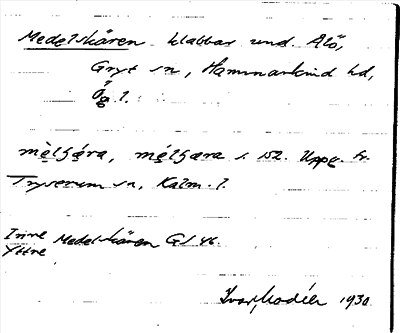 Medelskären klabbar und. Alö,
Gryt sn, Hammarkind hd,
Ög. l.
Uppg. fr.
Tryserum sn, Kalm. l.
Inre Medelskären GS 46.
Yttre
Ivar Modéer 1930